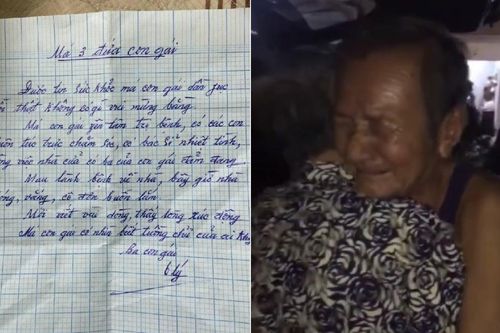 Má 3 đứa con gái
Được tin sức khỏe má con gái dần phục
thiệt không có gì vui mừng bằng
Má con gái yên tâm trị bệnh, có các con
luôn túc trực chăm sóc, có bác sĩ nhiệt tình,
công việc nhà cửa có ba của con gái đảm đang
Mau lành bệnh về nhà, bây giờ nhà
vắng, cô đơn buồn lắm
Mới viết vài dòng, thấy lòng xúc động
Má con gái có nhìn bút tường chữ của ai không
Ba con gái